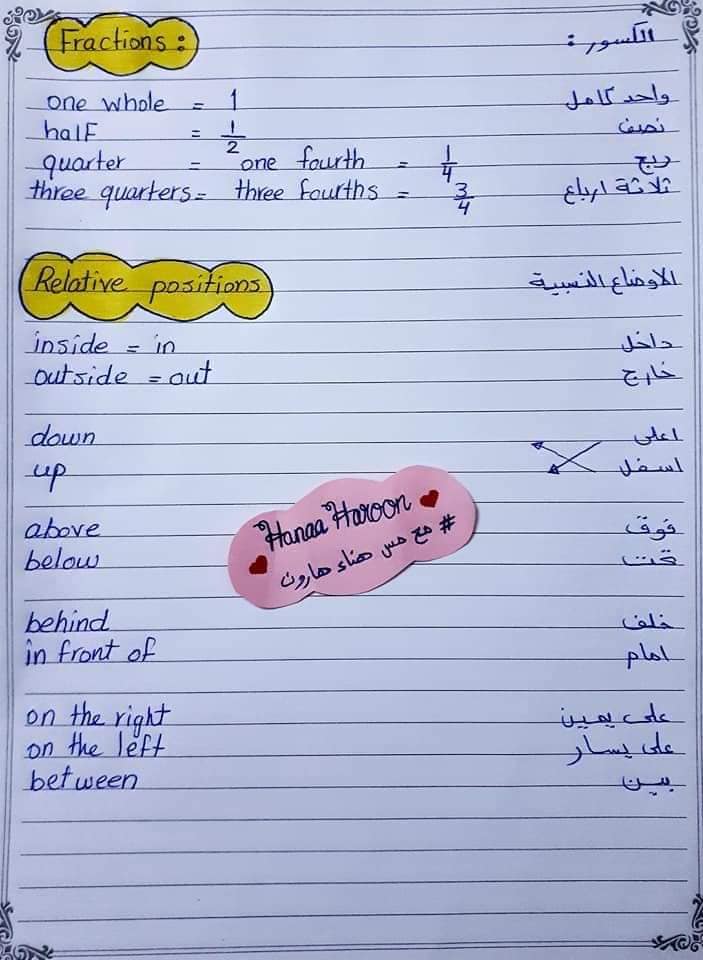 Fractions : الكسور :
one whole = 1 واحد كامل
half = 1/2 نصف
quarter = one fourth = 1/4 ربع
three quarters = three fourths = 3/4 ثلاثة ارباع
Relative positions الاوضاع النسبية
inside = in داخل
outside = out خارج
down اعلى
up اسفل
Hanaa Haroon
# مع مس هناء هارون
above فوق
below تحت
behind خلف
in front of امام
on the right على يمين
on the left على يسار
between بين